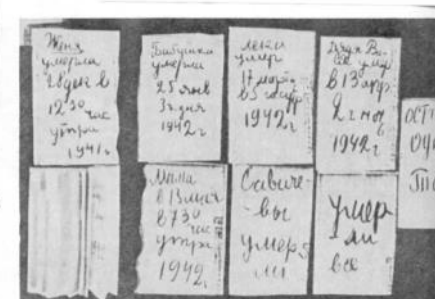 Женя
умерла
28 дек в
12 30 час
утра
1941 г
Бабушка
умерла
25 янв
3 ч дня
1942 г
Лека
умер
17 марта
в 5 час утр
1942 г
Дядя Ва-
ся умер
в 13 апр
2 ч ноч
1942 г
Мама
в 13 мая
в 7 30 час
утра
1942 г
Савиче-
вы
умер
ли
Умер
ли
все
ОСТ